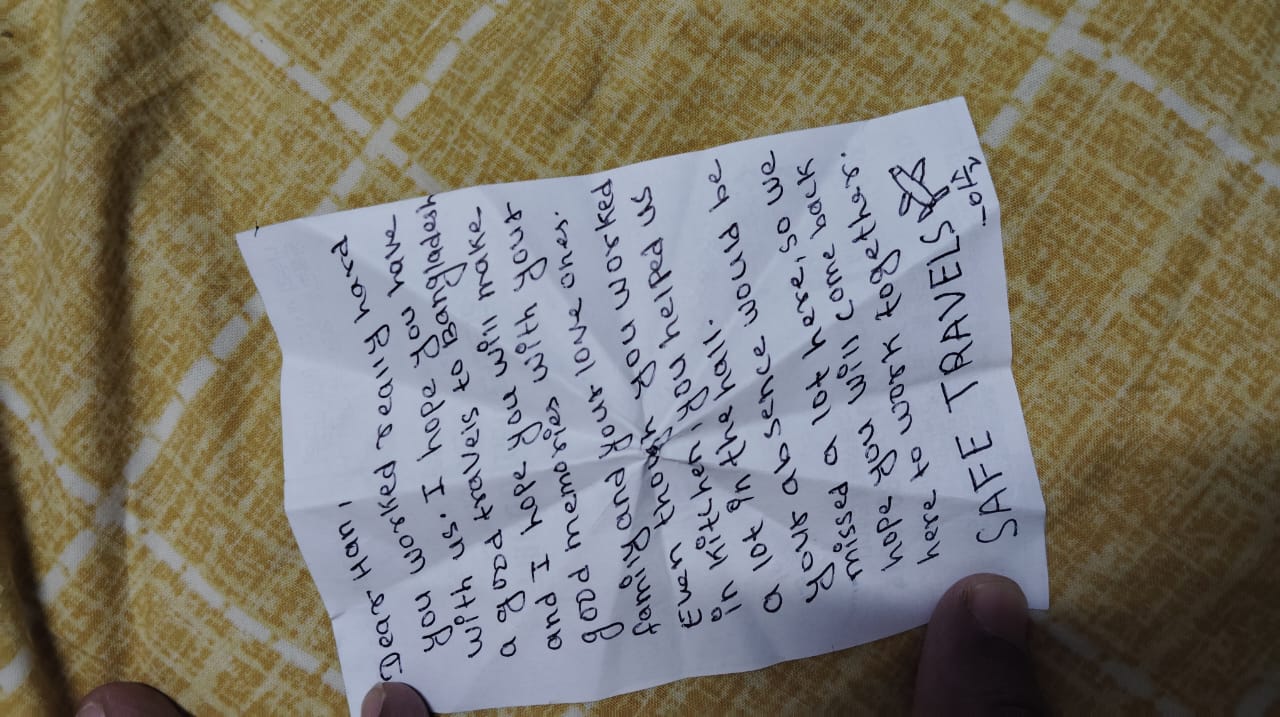 Dear Hani,
you worked really hard
with us. I hope you have
a good travels to Bangladesh
and I hope you will make
good memories with your
family and your love ones.
Even though you worked
in kitchen, you helped us
a lot in the hall.
your absence would be
missed a lot here, so we
hope you will come back
here to work together.
SAFE TRAVELS